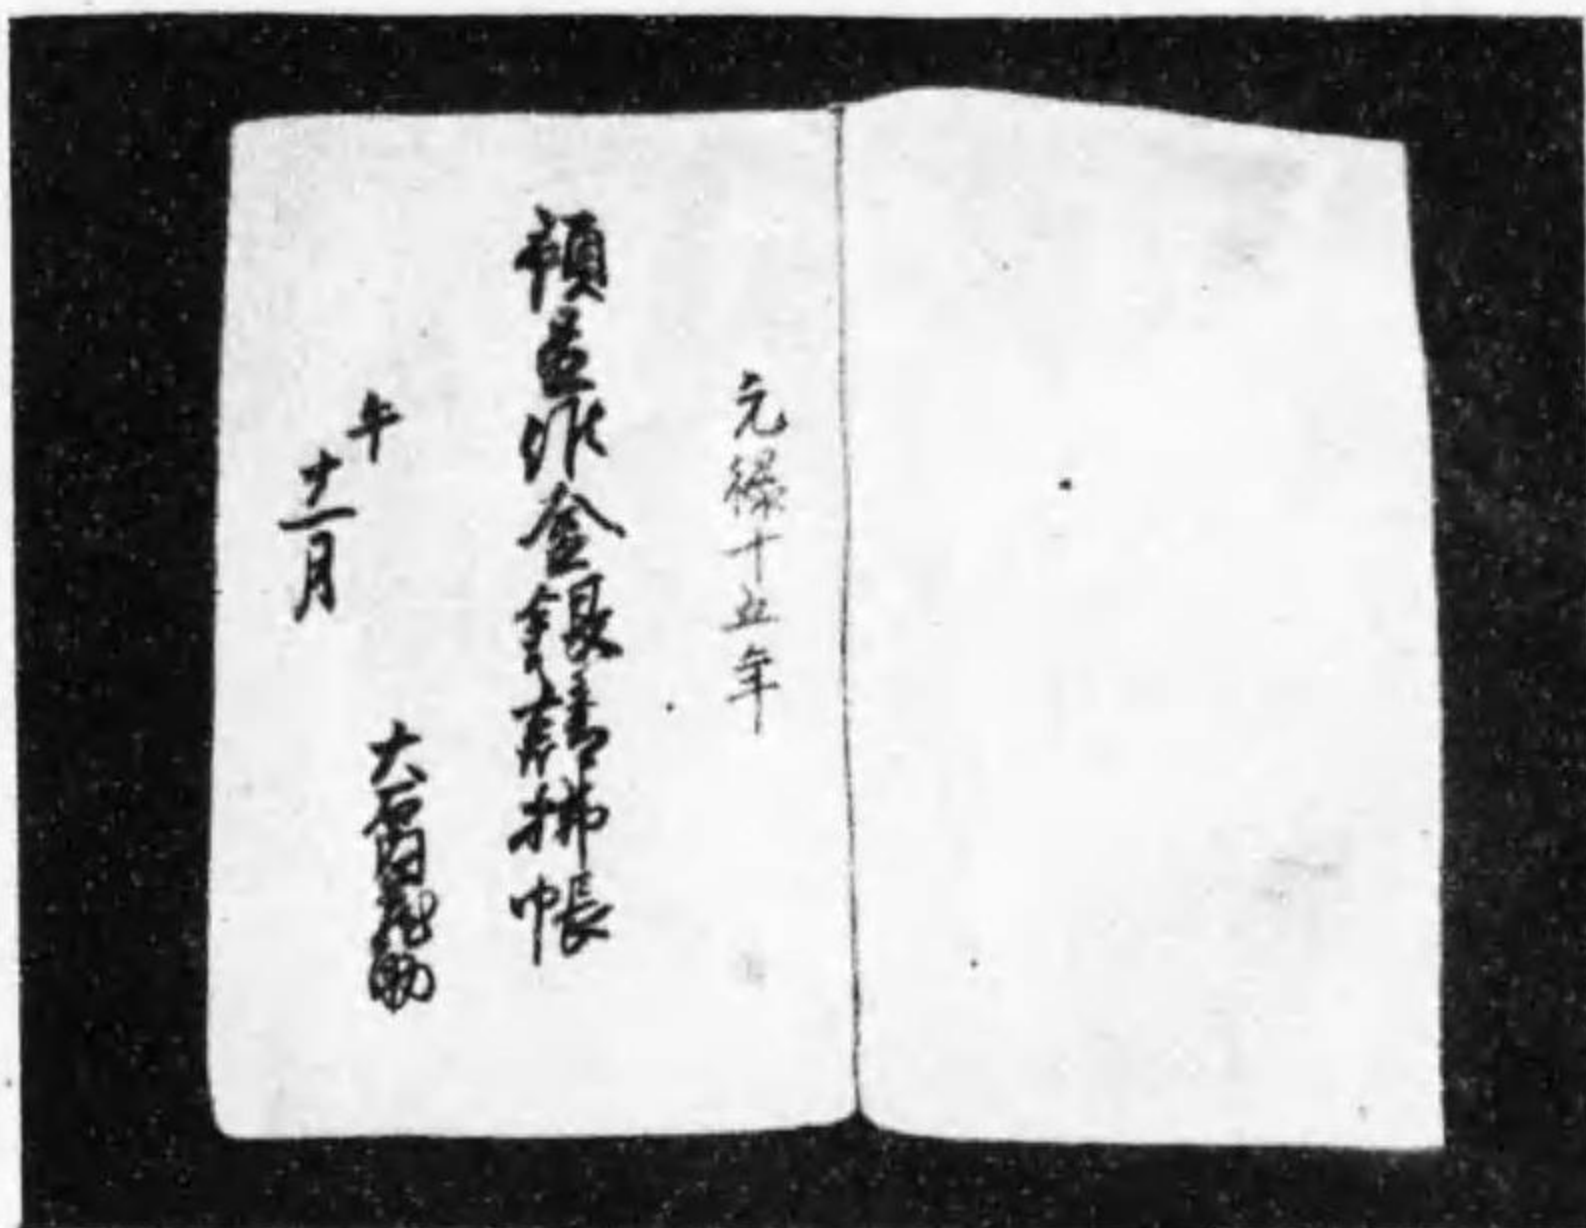 元禄十五年
預置候金銀請拂帳
午
十一月
大石内蔵助